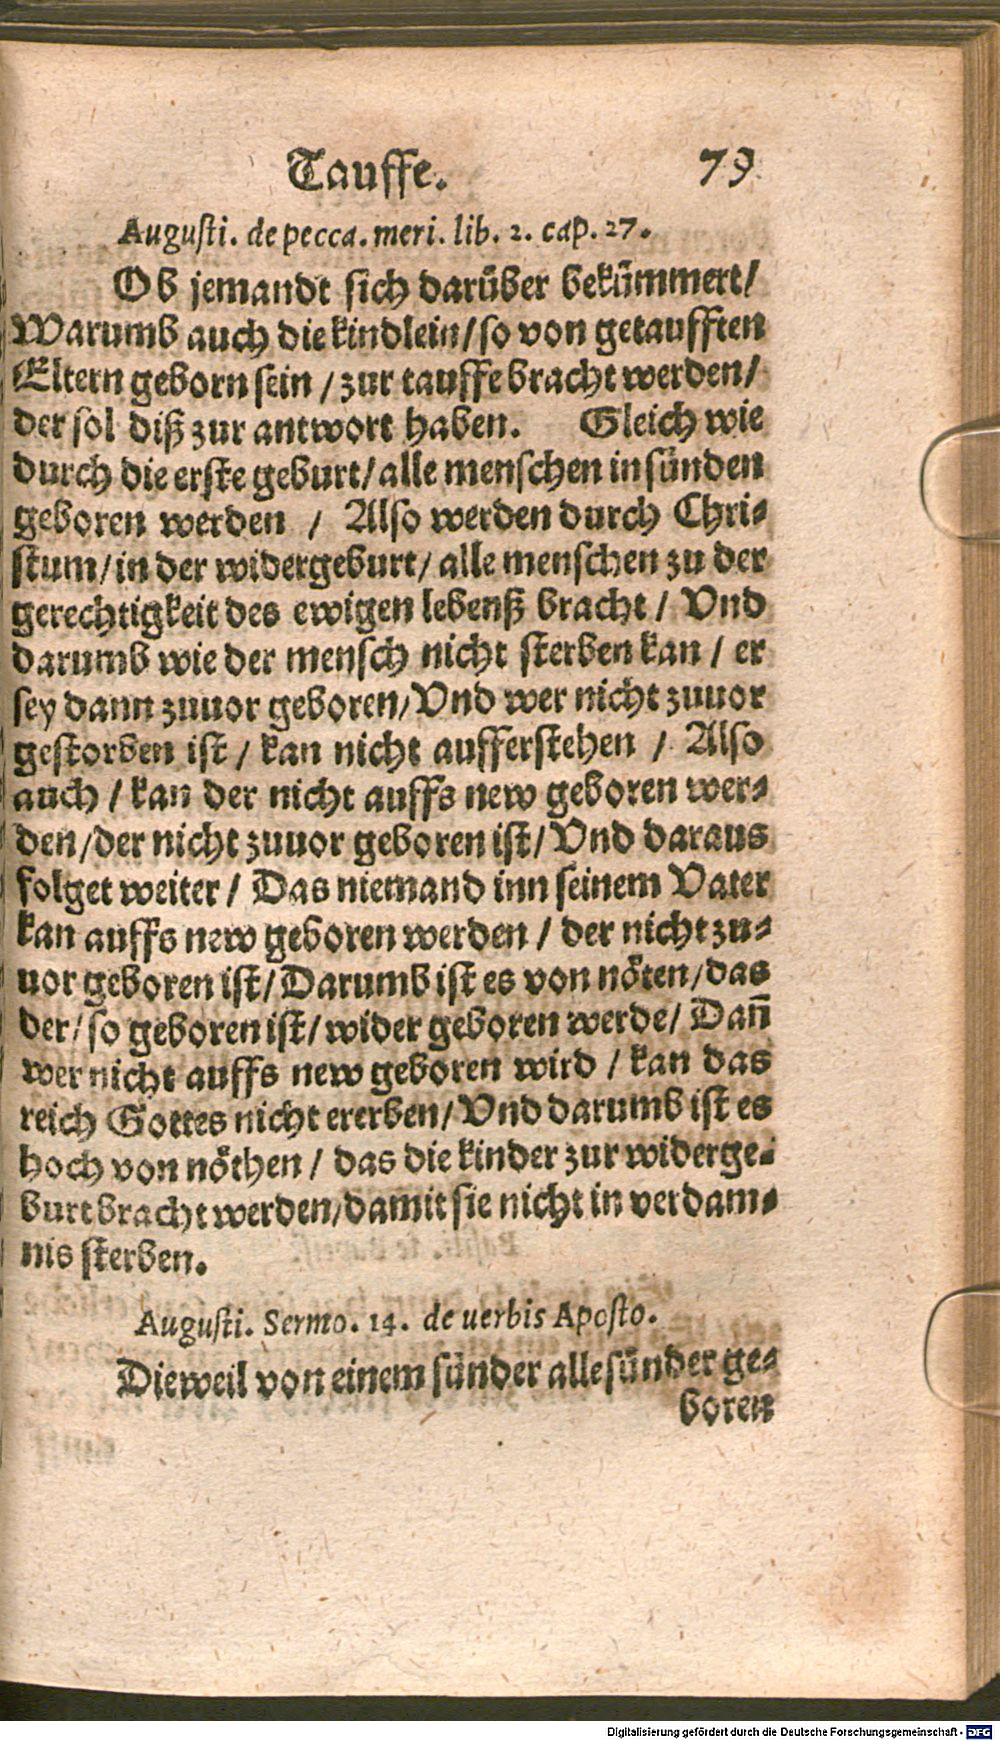 Tauffe. 79
Augusti. de pecca. meri. lib. 2. cap. 27.
Ob jemandt sich darüber bekümmert/
Warumb auch die kindlein/so von getaufften
Eltern geborn sein / zur tauffe bracht werden/
der sol diß zur antwort haben. Gleich wie
durch die erste geburt/alle menschen in sünden
geboren werden / Also werden durch Chri-
stum/in der widergeburt/ alle menschen zu der
gerechtigkeit des ewigen lebenß bracht / Vnd
darumb wie der mensch nicht sterben kan / er
sey dann zuuor geboren/Vnd wer nicht zuuor
gestorben ist / kan nicht aufferstehen / Also
auch / kan der nicht auffs new geboren wer-
den/der nicht zuuor geboren ist/ Vnd daraus
folget weiter / Das niemand inn seinem Vater
kan auffs new geboren werden / der nicht zu-
uor geboren ist/Darumb ist es von nöten/das
der/so geboren ist/wider geboren werde/ Dañ
wer nicht auffs new geboren wird / kan das
reich Gottes nicht ererben/Vnd darumb ist es
hoch von nöthen / das die kinder zur widerge-
burt bracht werden/damit sie nicht in verdam-
nis sterben.
Augusti. Sermo. 14. de uerbis Aposto.
Dieweil von einem sünder alle sünder ge-
boren
Digitalisierung gefördert durch die Deutsche Forschungsgemeinschaft - DFG